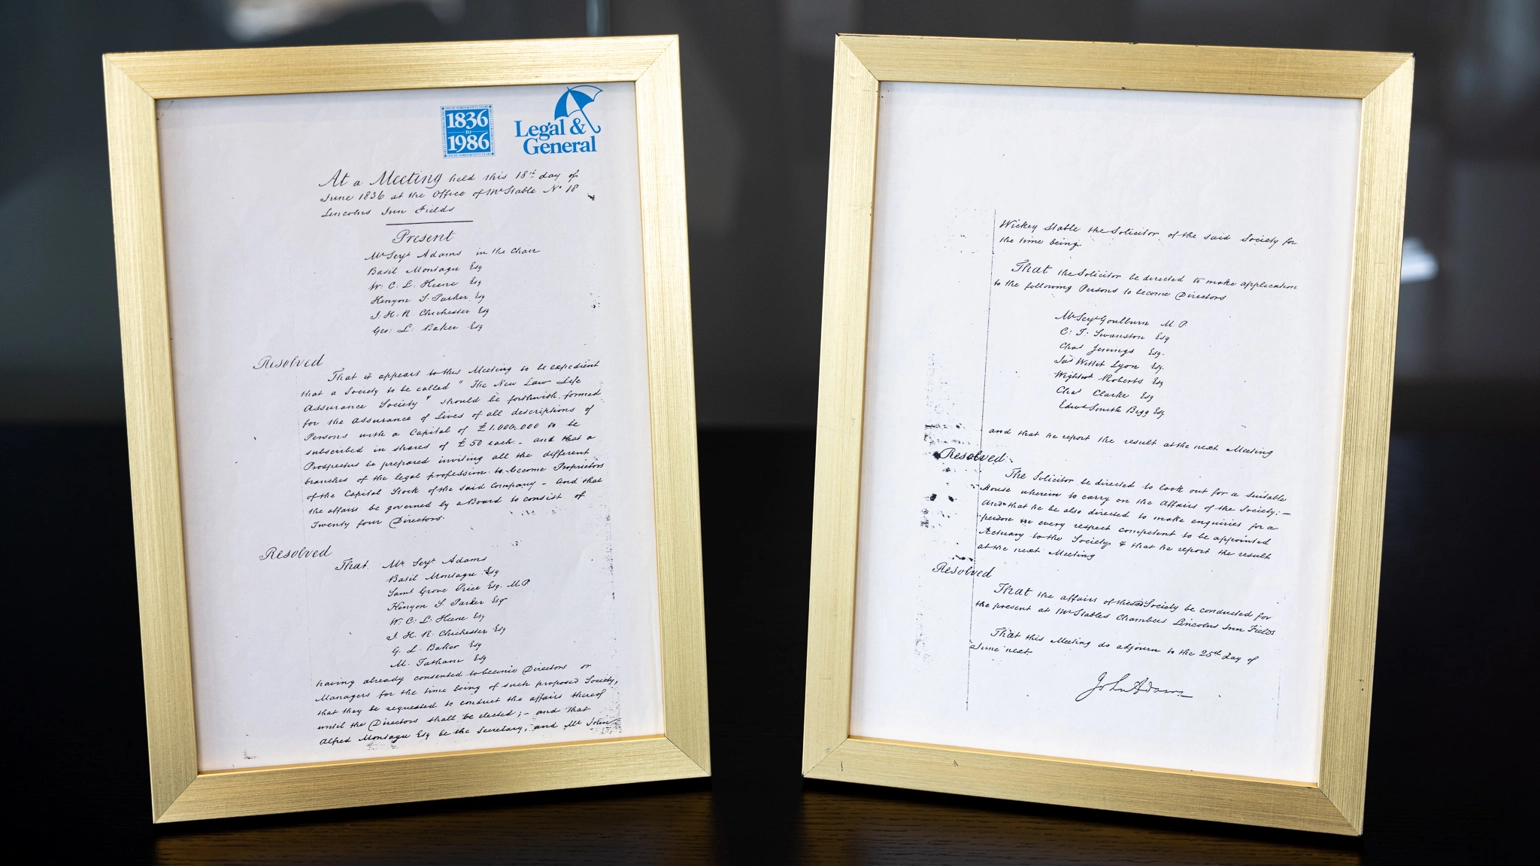 1836
to
1986
Legal &
General
At a Meeting held this 18th day of
June 1836 at the Office of Mr Stable No 18
Lincolns Inn Fields
Present
Mr Serjt Adams in the Chair
Basil Montagu Esq
W. C. L. Keene Esq
Kenyon S. Parker Esq
J. H. R Chichester Esq
Geo. L. Baker Esq
Resolved
That it appears to this Meeting to be expedient
that a Society to be called "The New Law Life
Assurance Society" should be forthwith formed
for the Assurance of Lives of all descriptions of
Persons with a Capital of £1,000,000 to be
subscribed in shares of £50 each - and that a
Prospectus be prepared inviting all the different
branches of the legal profession to become Proprietors
of the Capital Stock of the said Company - and that
the affairs be governed by a Board to consist of
Twenty four Directors.
Resolved
That Mr Serjt Adams
Basil Montagu Esq
Saml Grove Price Esq. M.P.
Kenyon S. Parker Esq
W. C. L. Keene Esq
J. H. R. Chichester Esq
G. L. Baker Esq
M. Tatham Esq
having already consented to become Directors or
Managers for the time being of such proposed Society,
that they be requested to conduct the affairs thereof
until the Directors shall be elected; - and that
Alfred Montagu Esq be the Secretary, and Mr John
Wickey Stable the Solicitor of the said Society for
the time being.
That the Solicitor be directed to make application
to the following Persons to become Directors
Mr Serjt Goulburn M.P.
C. T. Swanston Esq
Chas Jennings Esq.
Jas Willet Lyon Esq.
Wightwk Roberts Esq
Chas Clarke Esq
Edwd Smith Bigg Esq
and that he report the result at the next Meeting
Resolved.
The Solicitor be directed to look out for a suitable
House wherein to carry on the Affairs of the Society; -
And that he be also directed to make enquiries for a
person in every respect competent to be appointed
Actuary to the Society & that he report the result
at the next Meeting
Resolved
That the affairs of the Society be conducted for
the present at Mr Stables Chambers Lincolns Inn Fields
That this Meeting do adjourn to the 25th day of
June next
John Adams